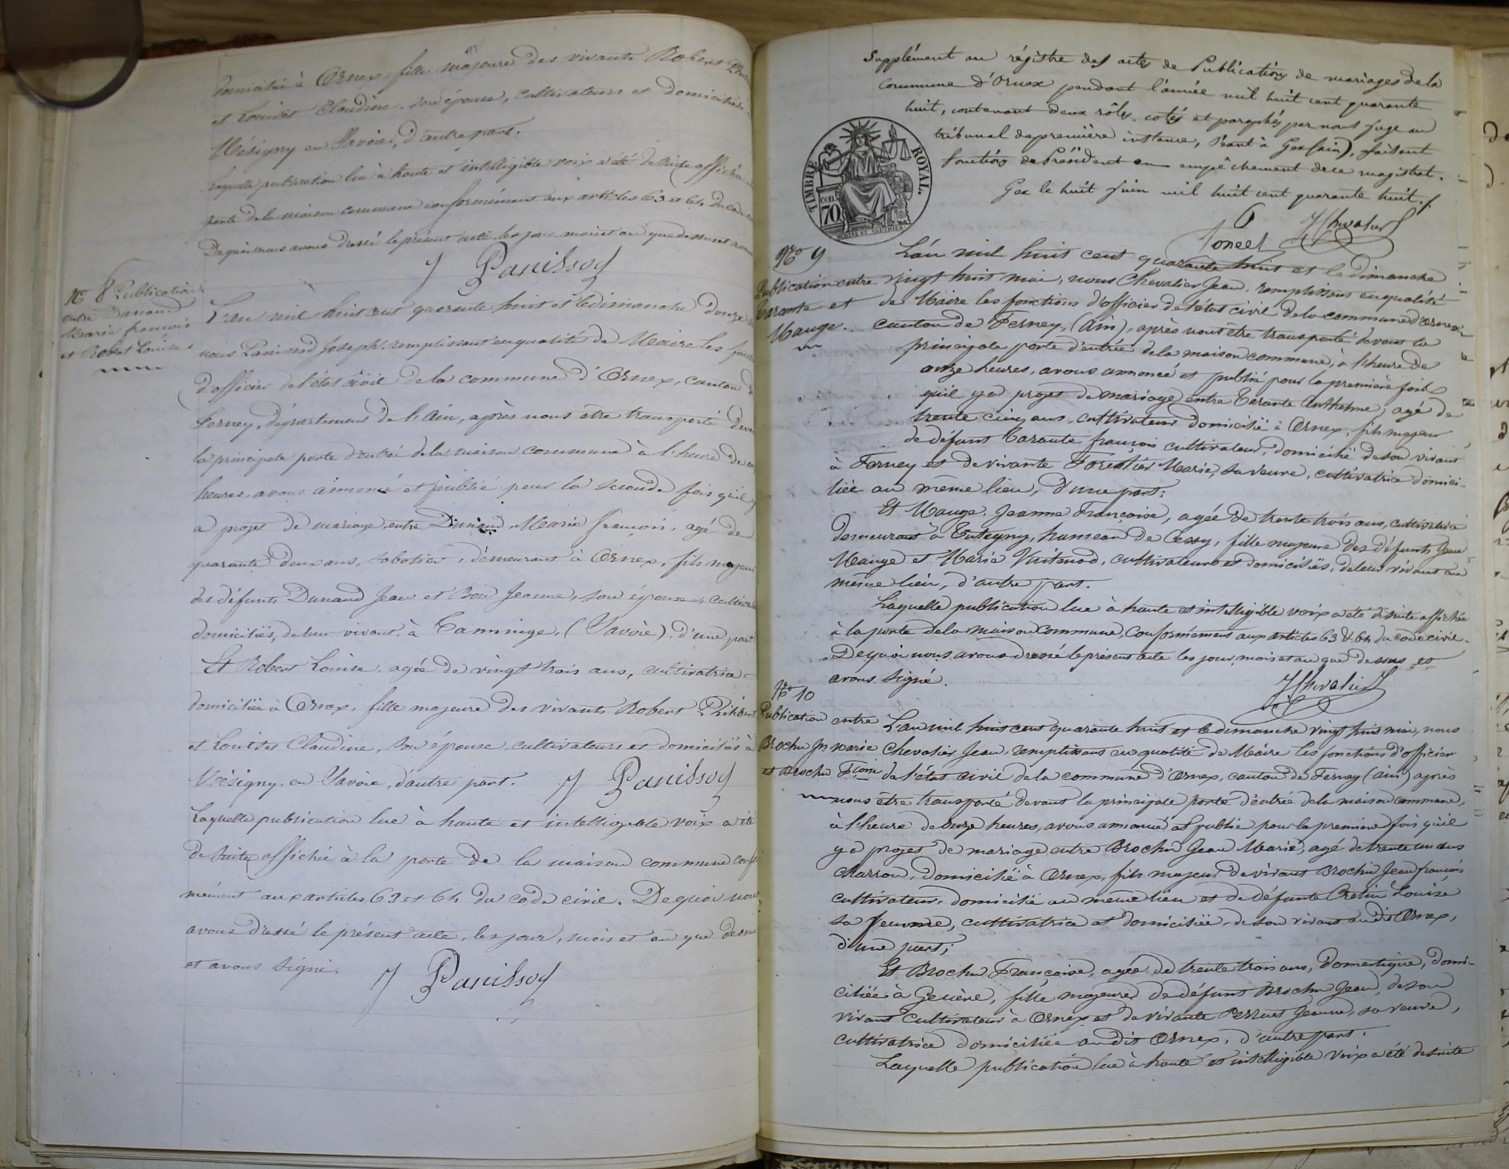 domiciliée à Ornex, fille majeure des vivants Robert
et Louises Claudine son épouse, cultivateurs et domiciliés
Vésigny en Savoie, d'autre part.
Laquelle publication lue à haute et intelligible voix a été de suite affichée
porte de la maison commune conformément aux articles 63 et 64 du code
De quoi nous avons dressé le présent acte les jour mois et an que dessus et avons
J Panissod
N° 8 Publication
entre Dunand
Marie françois
et Robert Louise
L'an mil huit cent quarante huit et le dimanche douze
nous Panissod Joseph remplissant en qualité de Maire les
d'officier de l'état civil de la commune d'Ornex, canton d
Ferney, département de l'Ain, après nous être transporté deva
la principale porte d'entrée de la maison commune à l'heure de
heures, avons annoncé et publié pour la seconde fois qu'il y
a projet de mariage entre Dunand Marie françois, agé de
quarante deux ans, sabotier, demeurant à Ornex, fils majeur
des défunts Dunand Jean et Jeanne, son épouse, cultiva
domiciliés, de leur vivant, à Taninge, (Savoie), d'une part
Et Robert Louise, agée de vingt trois ans, cultivatrice
domiciliée à Ornex, fille majeure des vivants Robert Philibert
et Louises Claudine, son épouse cultivateurs et domiciliés à
Vésigny, en Savoie, d'autre part. J Panissod
Laquelle publication lue à haute et intelligible voix a été
de suite affichée à la porte de la maison commune confor
mément aux articles 63 et 64 du code civil. De quoi nous
avons dressé le présent acte, les jour, mois et an que dessus
et avons signé. J Panissod
Supplément au régistre des actes de Publications de mariages de la
commune d'Ornex pendant l'année mil huit cent quarante
huit, contenant deux rôles, cotés et paraphés par nous Juge au
tribunal de première instance, séant à Gex (ain), faisant
fonctions de Président en empêchement de ce magistrat.
Gex le huit Juin mil huit cent quarante huit.
TIMBRE ROYAL
70
6
J Chevalier
N° 9
Publication entre
et
Mauge.
L'an mil huit cent quarante huit et le dimanche
vingt huit mai, nous Chevalier Jean, remplissant en qualité
de Maire les fonctions d'officier de l'état civil de la commune d'Ornex
canton de Ferney, (Ain), après nous être transporté devant la
principale porte d'entrée de la maison commune, à l'heure de
onze heures, avons annoncé et publié pour la première fois
qu'il y a projet de mariage entre Anthelme, agé de
trente cinq ans, cultivateur domicilié à Ornex, fils majeur
de défunt françois cultivateur, domicilié de son vivant
à Ferney et de vivante Forestier Marie, sa veuve, cultivatrice domici-
liée au même lieu, d'une part;
Et Mauge Jeanne Françoise, agée de trente trois ans, cultivatrice
demeurant à Tutegny, hameau de Cessy, fille majeure des défunts Jean
Mauge et Marie, cultivateurs et domiciliés, de leur vivant au
même lieu, d'autre part.
Laquelle publication lue à haute et intelligible voix a été de suite affichée
à la porte de la maison commune, conformément aux articles 63 & 64 du code civil.
De quoi nous avons dressé le présent acte les jour, mois et an que dessus et
avons signé. J Chevalier
N° 10
Publication entre
Brochu Jn Marie
et Brochu
L'an mil huit cent quarante huit et le dimanche vingt huit mai, nous
Chevalier Jean remplissant en qualité de Maire les fonctions d'officier
de l'état civil de la commune d'Ornex, canton de Ferney (ain) après
nous être transporté devant la principale porte d'entrée de la maison commune,
à l'heure de onze heures, avons annoncé et publié pour la première fois qu'il
y a projet de mariage entre Brochu Jean Marie, agé de trente un ans
charron, domicilié à Ornex, fils majeur de vivant Brochu Jean françois
cultivateur, domicilié au même lieu et de défunte Louise
sa femme, cultivatrice et domiciliée, de son vivant au dit Ornex,
d'une part;
Et Brochu Françoise, agée de trente trois ans, domestique, domi-
ciliée à Genève, fille majeure de défunt Brochu Jean, de son
vivant cultivateur à Ornex et de vivante Pernet Jeanne, sa veuve,
cultivatrice domiciliée au dit Ornex, d'autre part.
Laquelle publication lue à haute et intelligible voix a été de suite